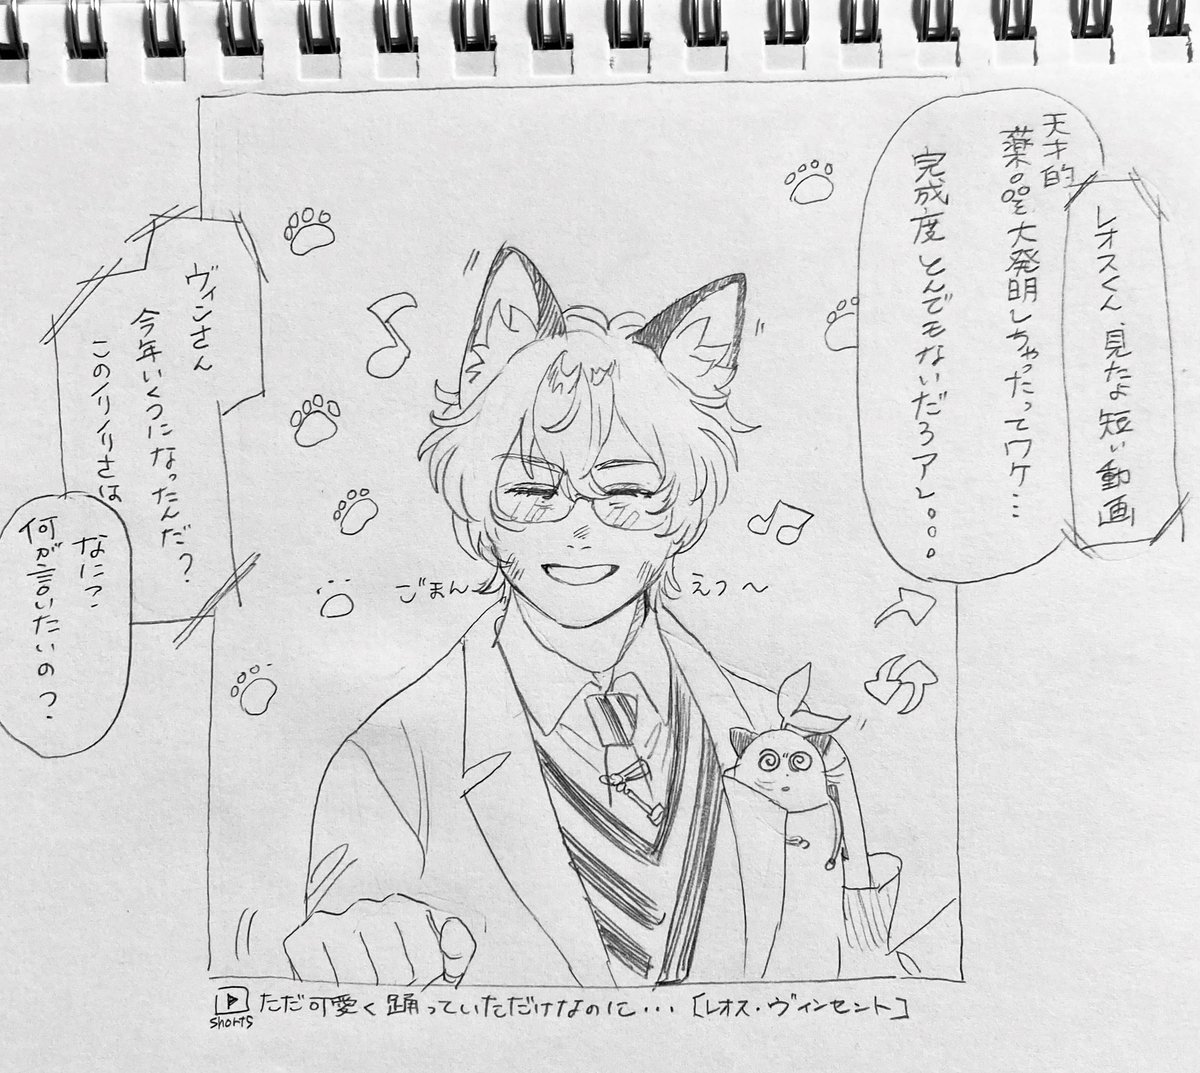 レオスくん 見たよ 短い動画
天才的
薬品を大発明しちゃったってワケ…
完成度とんでもないだろアレ。。。
ヴィンさん
今年いくつになったんだ?
このノリノリさは
なに?
何が言いたいの?
ごまん
えつ〜
shorts
ただ可愛く踊っていただけなのに… [レオス・ヴィンセント]